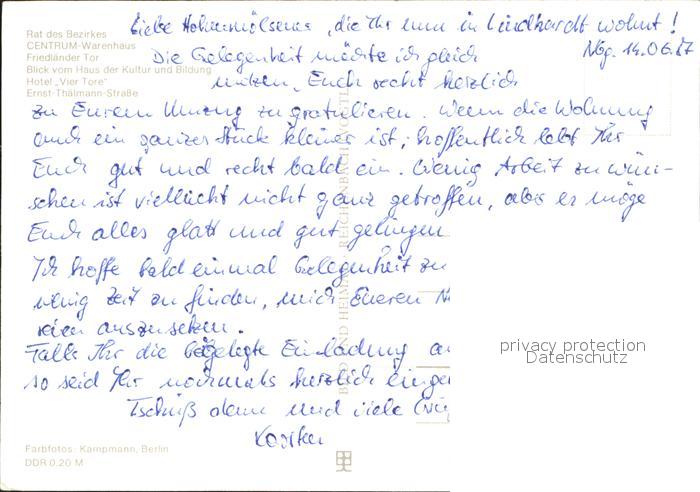 Liebe Hohenmölsener, die Ihr nun in Lindhardt wohnt!
Nbg. 14.06.87
Die Gelegenheit möchte ich gleich
nutzen, Euch recht herzlich
zu Eurem Umzug zu gratulieren. Wenn die Wohnung
auch ein ganzes Stück kleiner ist, hoffentlich lebt Ihr
Euch gut und recht bald ein. Wenig Arbeit zu wün-
schen ist vielleicht nicht ganz getroffen, aber es möge
Euch alles glatt und gut gelingen
Ich hoffe bald einmal Gelegenheit zu
wenig Zeit zu finden, mich Eueren
reien auszusetzen.
Falls Ihr die beigelegte Einladung
so seid Ihr nochmals herzlich einge
Tschüß denn und viele Grü
Rat des Bezirkes
CENTRUM-Warenhaus
Friedländer Tor
Blick vom Haus der Kultur und Bildung
Hotel „Vier Tore"
Ernst-Thälmann-Straße
BILD UND HEIMAT REICHENBACH
privacy protection
Datenschutz
Farbfotos: Kampmann, Berlin
DDR 0.20 M